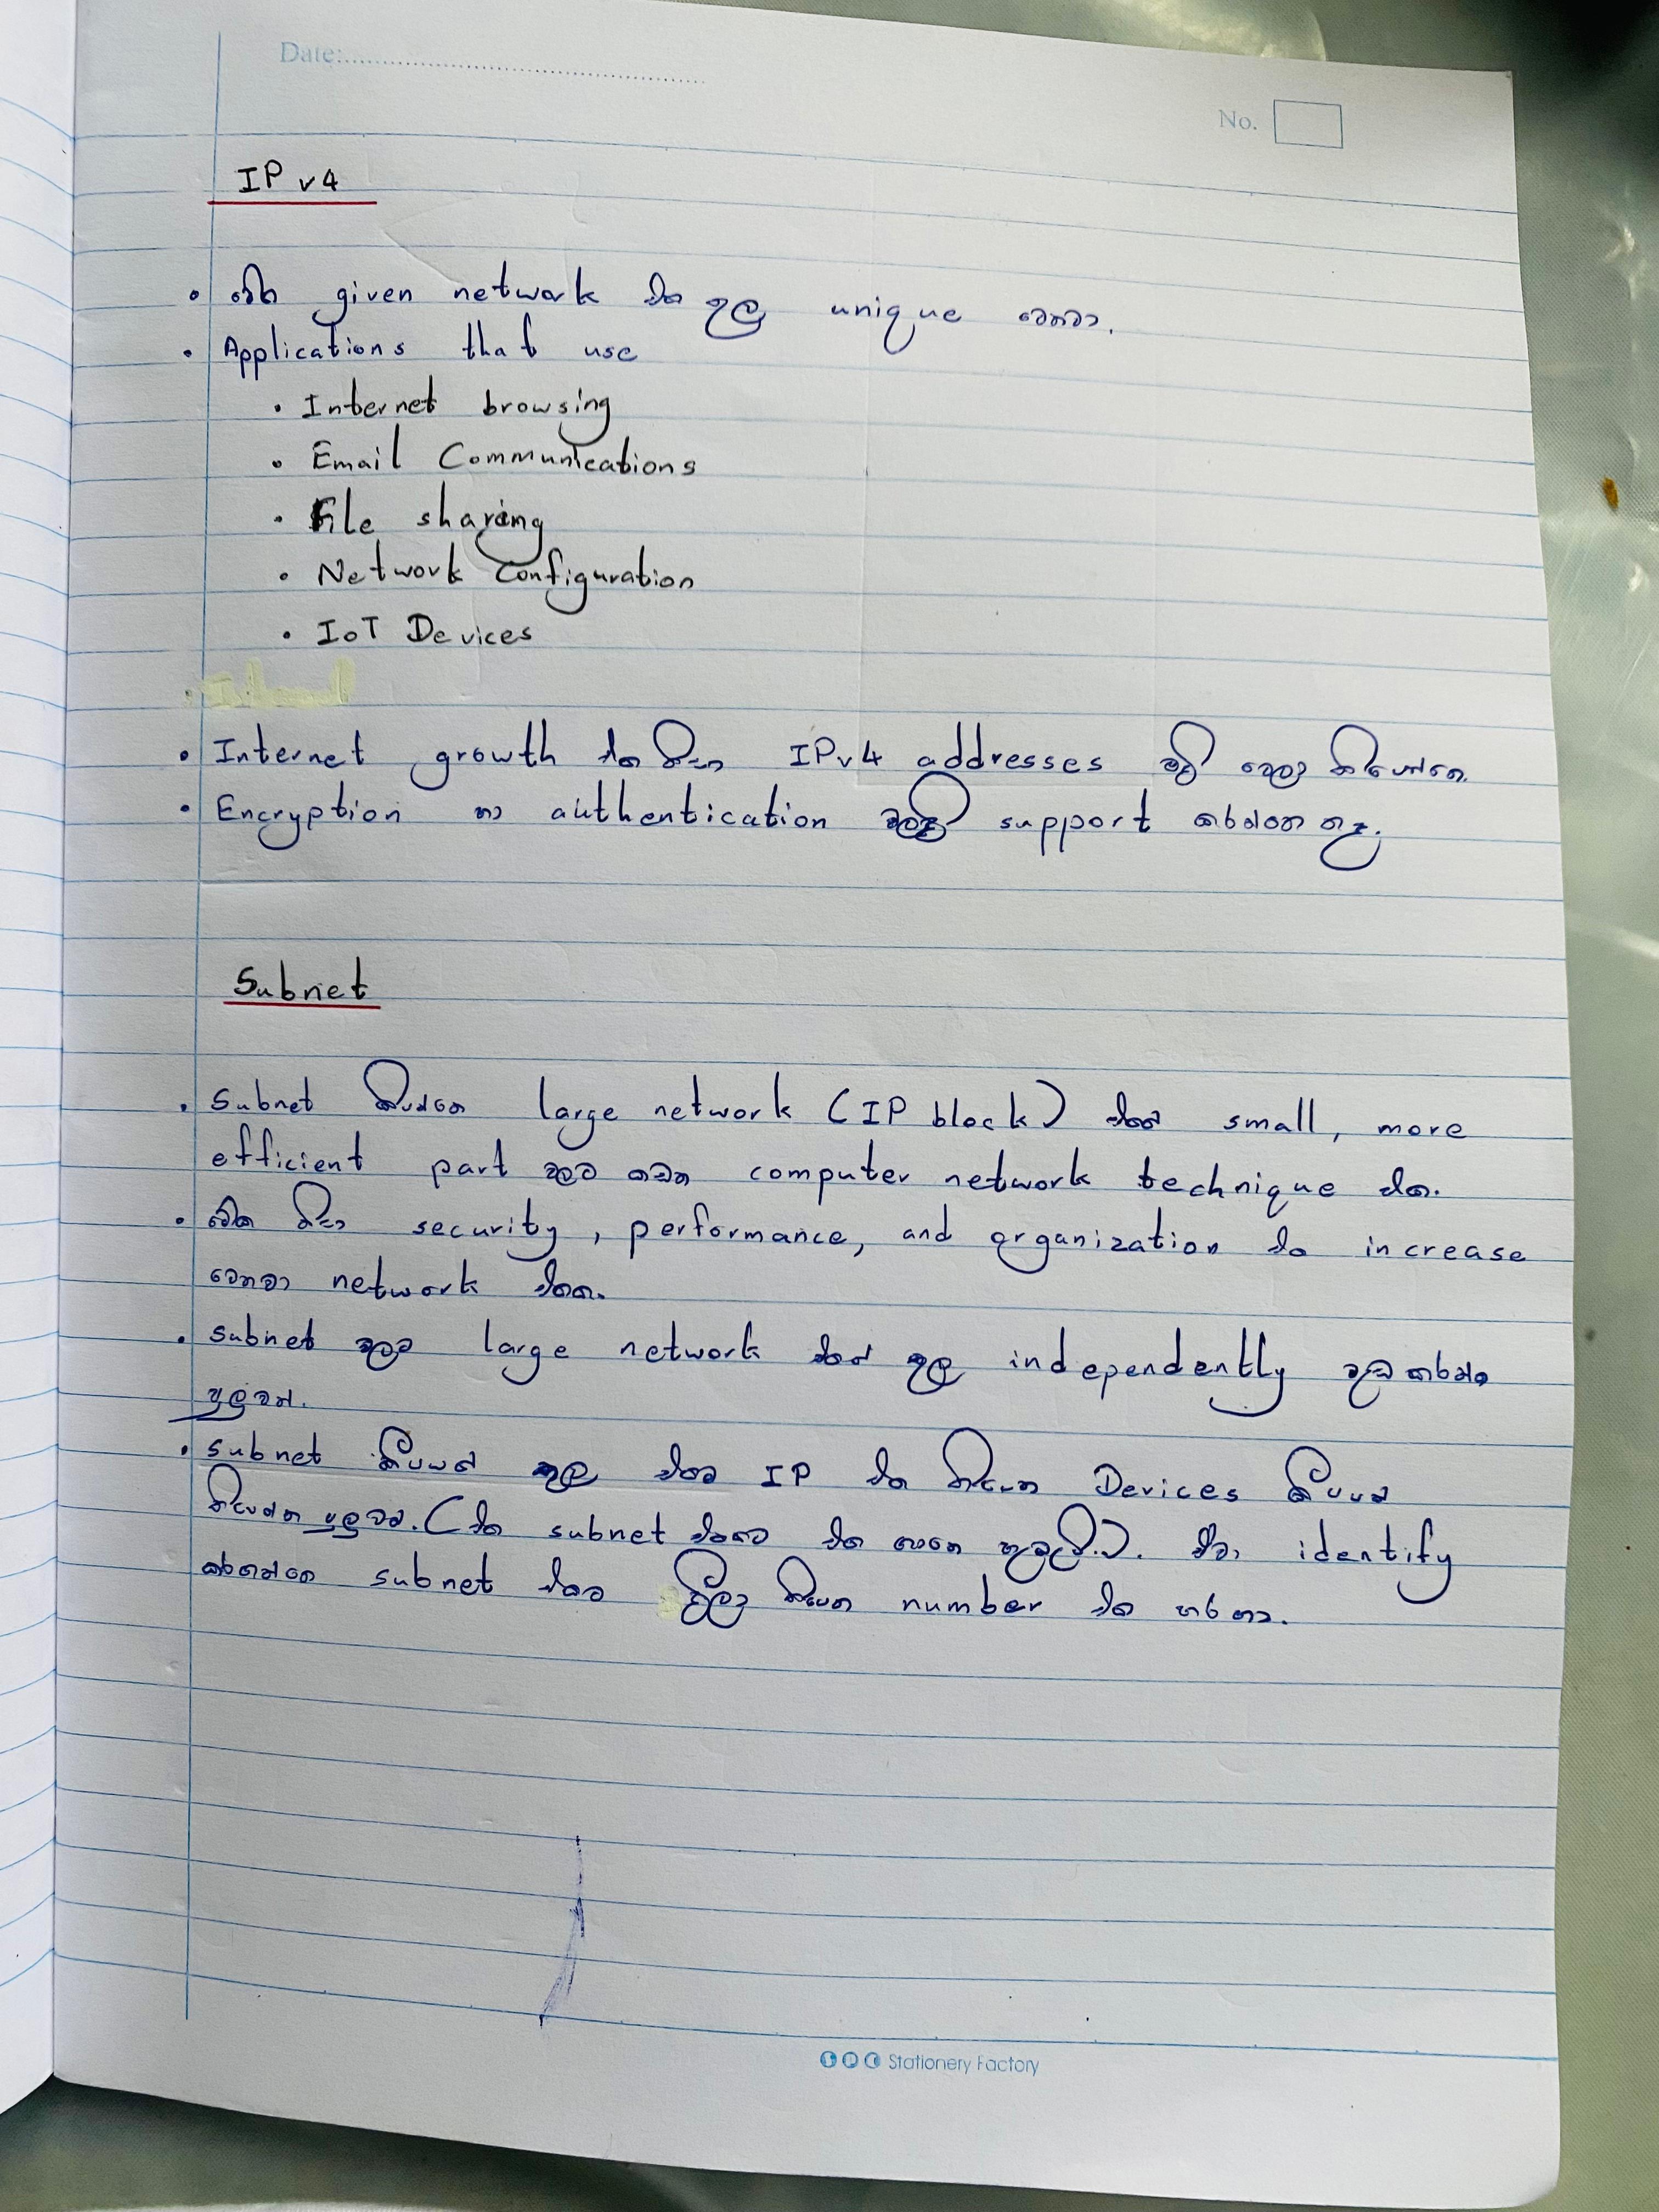 Date:
No.
IP v4
• මේක given network එක තුල unique වෙනවා.
• Applications that use
• Internet browsing
• Email Communications
• File sharing
• Network Configuration
• IoT Devices
• Internet growth එක නිසා IPv4 addresses මදි වෙලා තියෙන්නෙ.
• Encryption හා authentication වලදි support කරන්නෙ නෑ.
Subnet
• Subnet කියන්නෙ large network (IP block) එකක් small, more
efficient part වලට කඩන computer network technique එක.
• මේක නිසා security, performance, and organization එක increase
වෙනවා network එකක.
• Subnet වලට large network එකක් තුල independently වැඩ කරන්න
පුලුවන්.
• Subnet කිපයක් තුල එකම IP එක තියෙන Devices කිපයක්
තියෙන්න පුලුවන්. (එක subnet එකකට එක ගානෙ හැබැයි.). ඒවා identify
කරගන්නෙ subnet එකට දීලා තියෙන number එක හරහා.
Stationery Factory